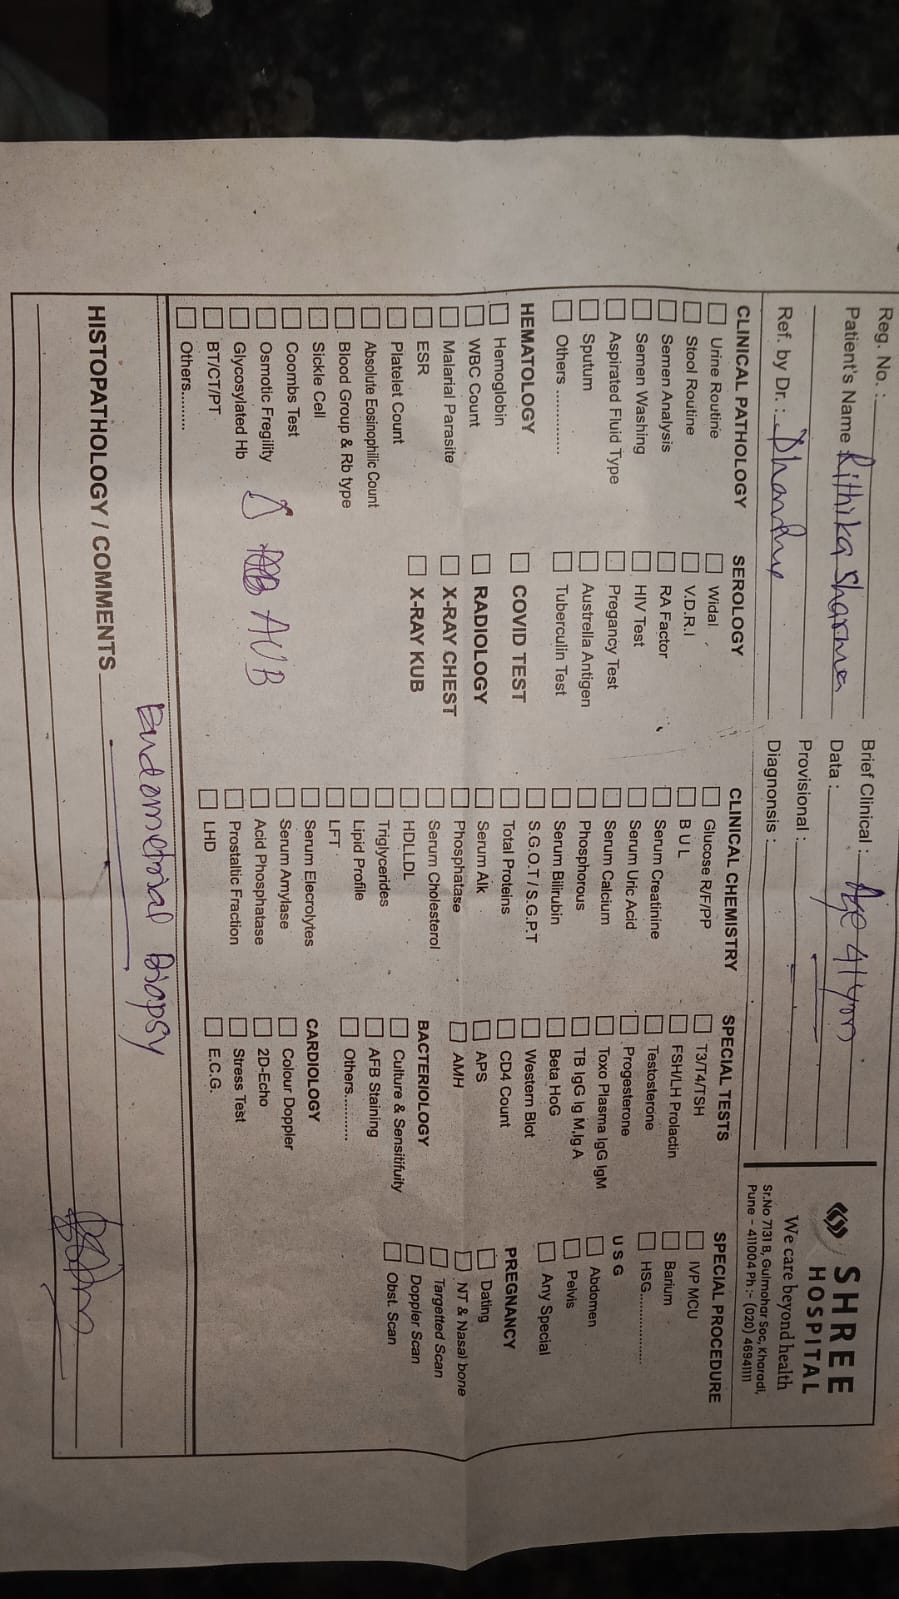 Reg. No. :
Patient's Name Rithika Sharma
Ref. by Dr. :
Brief Clinical : Age 41 yrs
Data :
Provisional :
Diagnonsis :
SHREE
HOSPITAL
We care beyond health
Sr.No 7131 B, Gulmohar Soc, Kharadi,
Pune - 411004 Ph :- (020) 46941111
CLINICAL PATHOLOGY
Urine Routine
Stool Routine
Semen Analysis
Semen Washing
Aspirated Fluid Type
Sputum
Others ............
HEMATOLOGY
Hemoglobin
WBC Count
Malarial Parasite
ESR
Platelet Count
Absolute Eosinophilic Count
Blood Group & Rb type
Sickle Cell
Coombs Test
Osmotic Fregility
Glycosylated Hb
BT/CT/PT
Others........
SEROLOGY
Widal
V.D.R.I
RA Factor
HIV Test
Pregancy Test
Austrella Antigen
Tuberculin Test
COVID TEST
RADIOLOGY
X-RAY CHEST
X-RAY KUB
AUB
CLINICAL CHEMISTRY
Glucose R/F/PP
B U L
Serum Creatinine
Serum Uric Acid
Serum Calcium
Phosphorous
Serum Bilirubin
S.G.O.T / S.G.P.T
Total Proteins
Serum Alk
Phosphatase
Serum Cholesterol
HDLLDL
Triglycerides
Lipid Profile
LFT
Serum Elecrolytes
Serum Amylase
Acid Phosphatase
Prostaltic Fraction
LHD
SPECIAL TESTS
T3/T4/TSH
FSH/LH Prolactin
Testosterone
Progesterone
Toxo Plasma IgG IgM
TB IgG Ig M,Ig A
Beta HoG
Western Blot
CD4 Count
APS
AMH
BACTERIOLOGY
Culture & Sensitifuity
AFB Staining
Others...........
CARDIOLOGY
Colour Doppler
2D-Echo
Stress Test
E.C.G.
SPECIAL PROCEDURE
IVP MCU
Barium
HSG..................
U S G
Abdomen
Pelvis
Any Special
PREGNANCY
Dating
NT & Nasal bone
Targetted Scan
Doppler Scan
Obst. Scan
Endometrial Biopsy
HISTOPATHOLOGY / COMMENTS